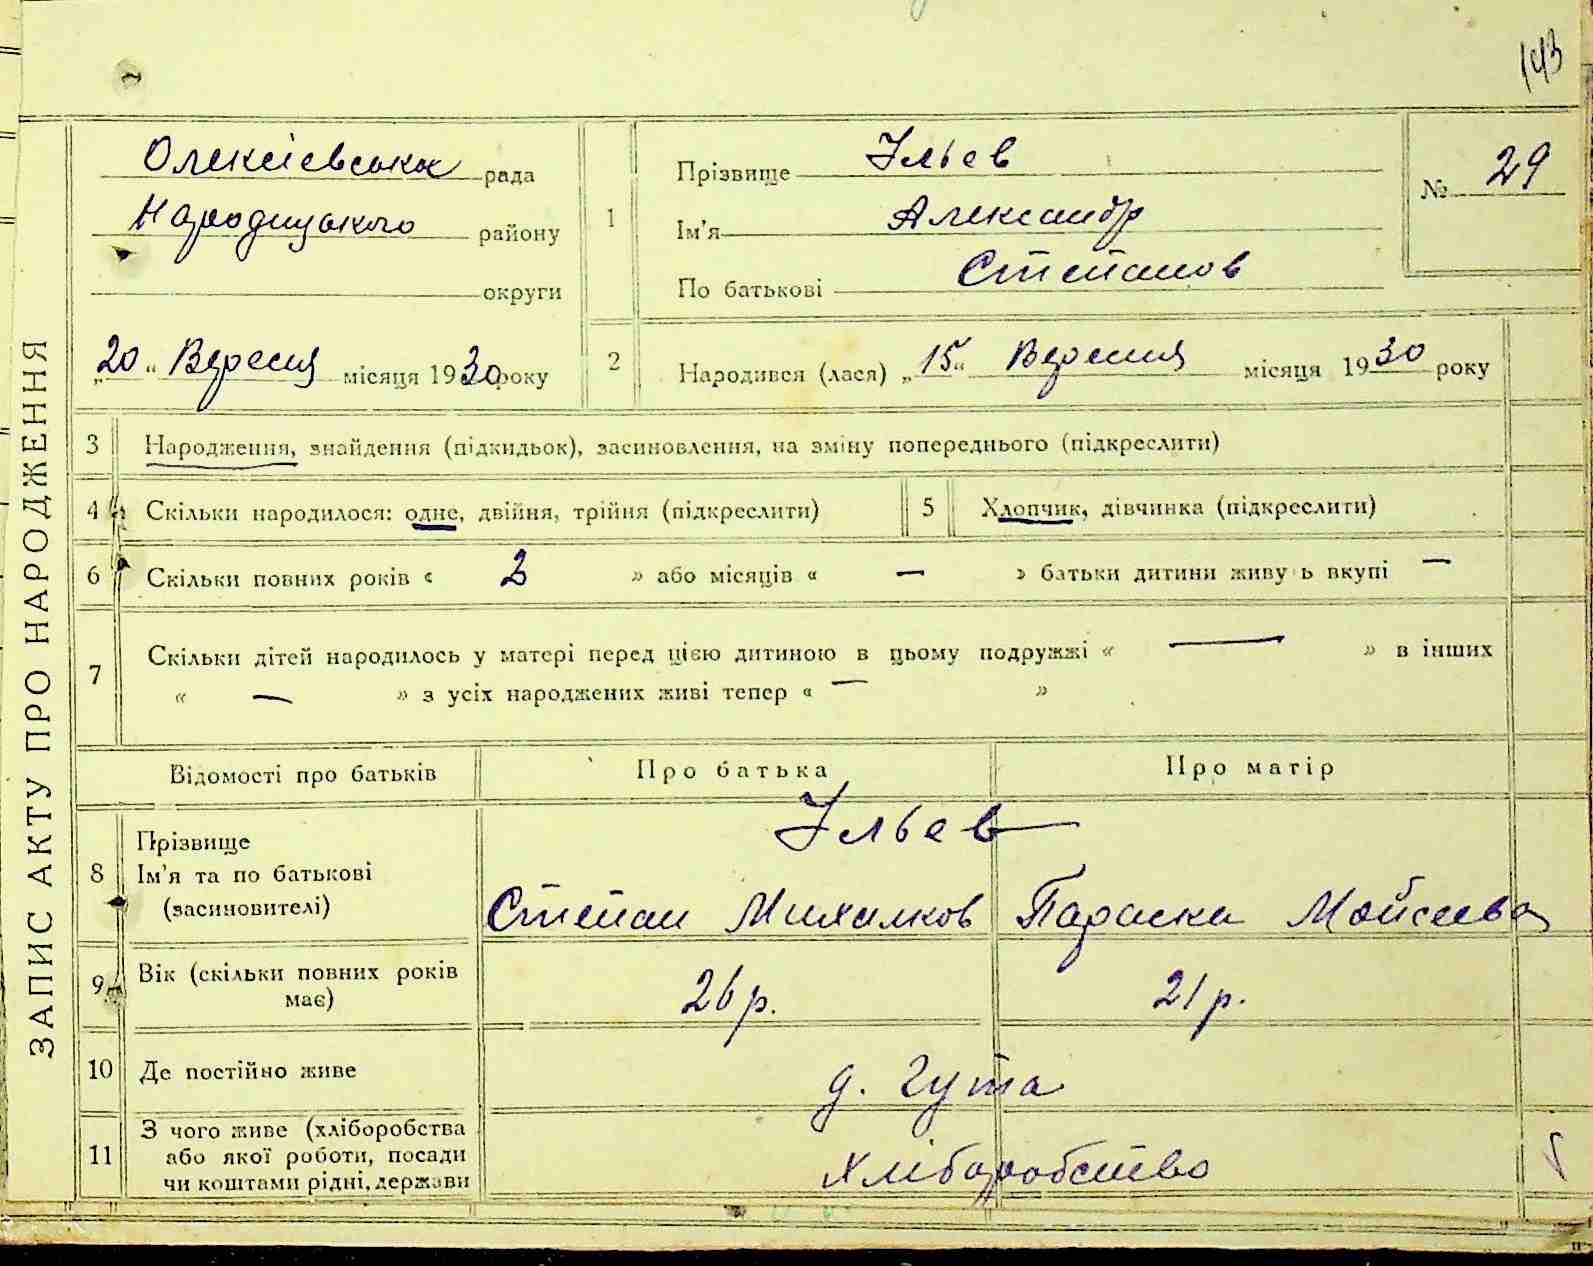 143
ЗАПИС АКТУ ПРО НАРОДЖЕННЯ
Олексіевська рада
Народицького району
округи
„20“ Вересня місяця 1930 року
1
Прізвище Ільев
Ім'я Александр
По батькові Степанов
№ 29
2
Народився (лася) „15“ Вересня місяця 1930 року
3 Народження, знайдення (підкидьок), засиновлення, на зміну попереднього (підкреслити)
4 Скільки народилося: одне, двійня, трійня (підкреслити)
5 Хлопчик, дівчинка (підкреслити)
6 Скільки повних років « 2 » або місяців « — » батьки дитини живуть вкупі —
7 Скільки дітей народилось у матері перед цією дитиною в цьому подружжі « — » в інших
« — » з усіх народжених живі тепер « — »
Відомості про батьків Про батька Про матір
8 Прізвище
Ім'я та по батькові
(засиновителі)
Ільев
Степан Михалков Параска Мойсеева
9 Вік (скільки повних років
має)
26 р. 21 р.
10 Де постійно живе д. Гута
11 З чого живе (хліборобства
або якої роботи, посади
чи коштами рідні, держави
хліборобство